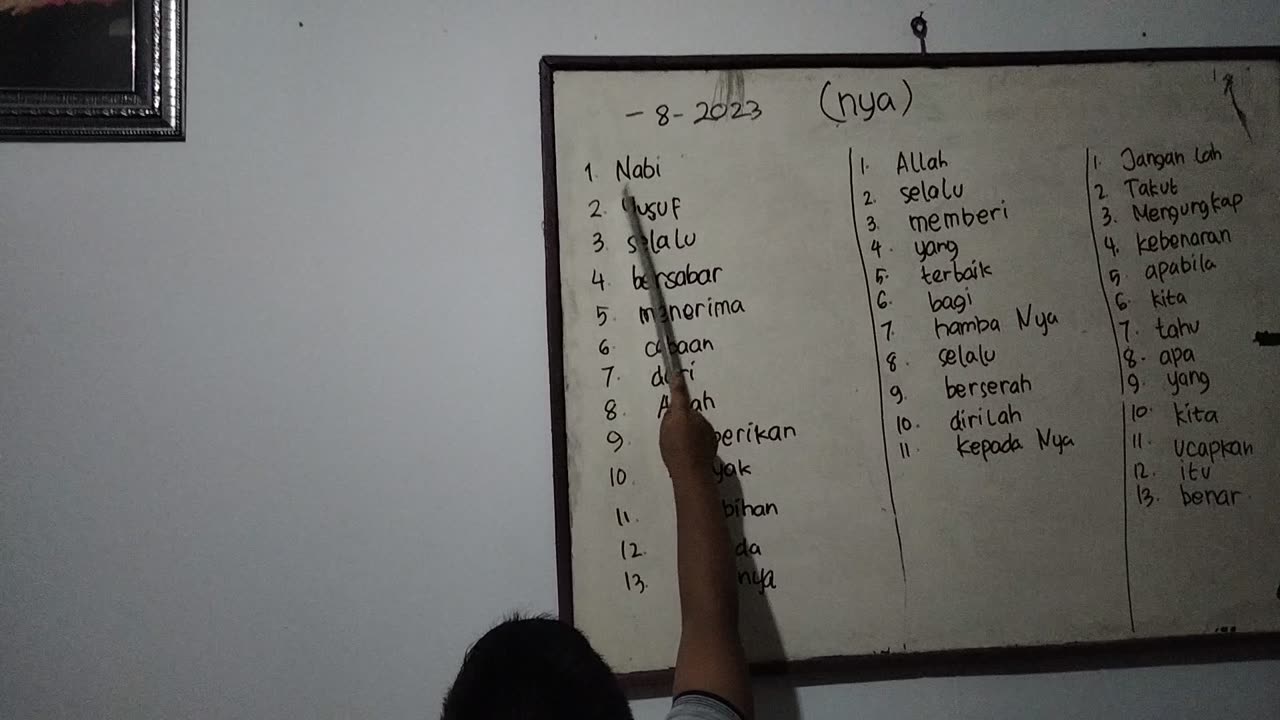 - 8 - 2023 (nya)
1. Nabi
2. Yusuf
3. selalu
4. bersabar
5. menerima
6. cobaan
7. dari
8. Allah
9.
10.
11.
12.
13.
1. Allah
2. selalu
3. memberi
4. yang
5. terbaik
6. bagi
7. hamba Nya
8. selalu
9. berserah
10. dirilah
11. kepada Nya
1. Jangan lah
2. Takut
3. Mengungkap
4. kebenaran
5. apabila
6. kita
7. tahu
8. apa
9. yang
10. kita
11. ucapkan
12. itu
13. benar